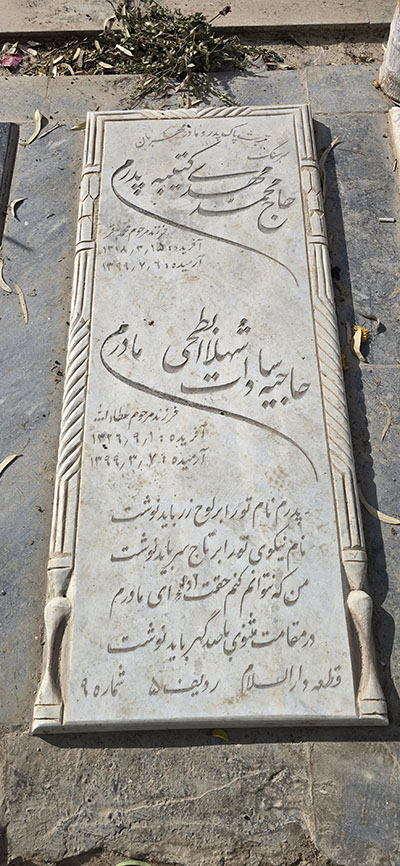 جسم پاک پدر و مادر مهربان
حاج محمد مهدی کتیبه پدرم
فرزند مرحوم محمد باقر
آفریده : ۱۳۱۸٫۳٫۱۵
آرمیده : ۱۳۹۹٫۷٫۶
حاجیه سادات شهلا ابطحی مادرم
فرزند مرحوم عطاءالله
آفریده : ۱۳۲۶٫۹٫۱
آرمیده : ۱۳۹۹٫۳٫۷
پدرم نام تو را بر لوح زر باید نوشت
نام نیکوی تو را بر تاج سر باید نوشت
من که نتوانم کنم حقت ادا ای مادرم
در مقامت مثنوی با صد گهر باید نوشت
قطعه دارالسلام ردیف ۵ شماره ۹